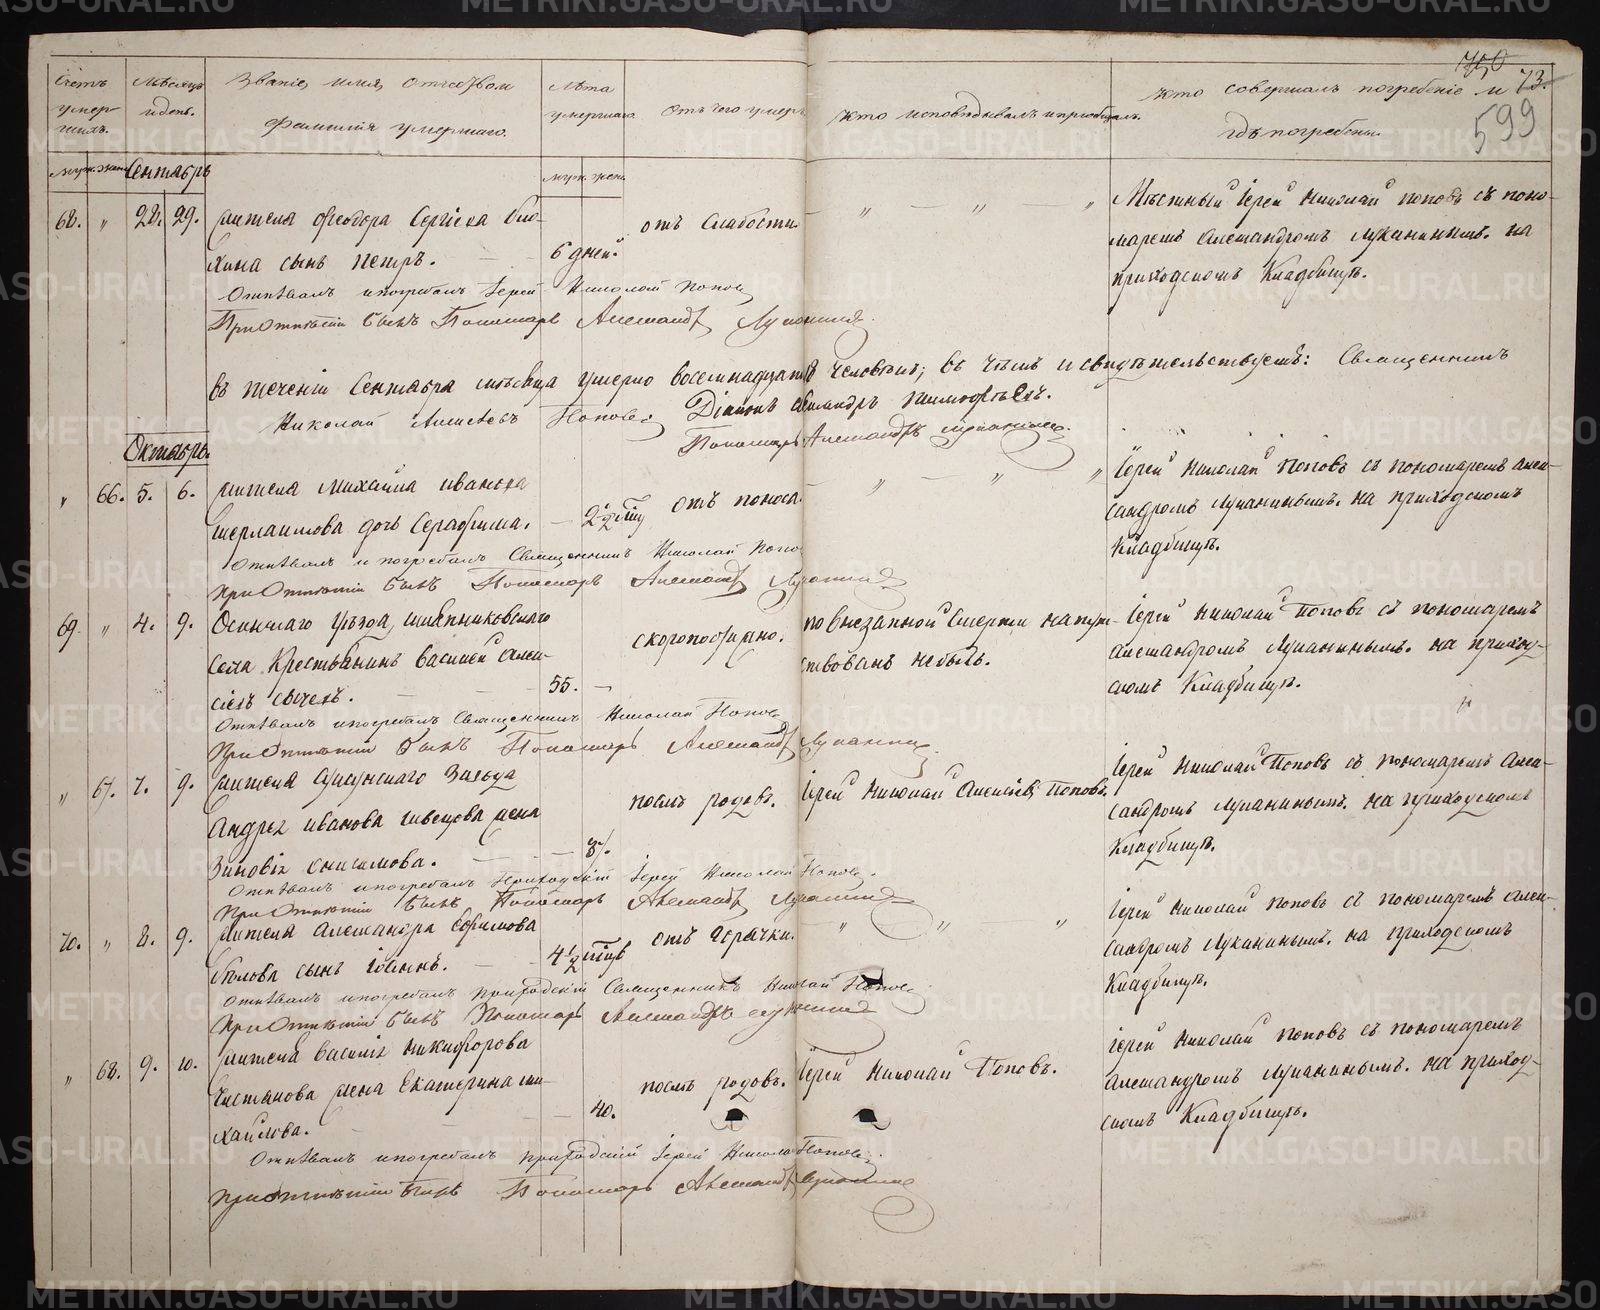 METRIKI.GASO-URAL.RU
750
73.
599
Счетъ умер шихъ.
Мѣсяцъ и день.
Званіе, имя, отчество и фамилія умершаго.
Лѣта умершаго.
Отъ чего умеръ
Кто исповѣдывалъ и пріобщалъ.
Кто совершалъ погребеніе и гдѣ погребены.
муж. жен.
Сентябрь
муж. жен.
68. " 28. 29. жителя Ѳеодора Сергіева
сынъ Петръ. 6 дней.
отъ слабости.
" " "
Мѣстный Іерей Николай Поповъ съ поно-
маремъ Александромъ Луканинымъ. на
приходскомъ Кладбищѣ.
Отпѣвалъ и погребалъ Іерей Николай Поповъ
При Отпѣтіи былъ Пономарь Александръ Луканинъ.
въ теченіи Сентября мѣсяца умерло восемнадцать человѣкъ; въ чѣмъ и свидѣтельствуемъ: Священникъ
Николай Алексѣевъ Поповъ. Діаконъ
Пономарь Александръ Луканинъ.
Октябрь.
" 66. 5. 6. жителя Михаила Иванова
дочь Серафима. 2 1/2
отъ поноса.
" " "
Іерей Николай Поповъ съ пономаремъ Алек-
сандромъ Луканинымъ. на приходскомъ
Кладбищѣ.
Отпѣвалъ и погребалъ Священникъ Николай Попо
При Отпѣтіи былъ Пономарь Александръ Луканинъ
69. " 4. 9. Осинскаго уѣзда,
села Крестьянинъ Василій Алек-
сѣевъ 55.
скоропостижно.
по внезапной смерти напут-
ствованъ небылъ.
Іерей Николай Поповъ съ пономаремъ
Александромъ Луканинымъ. на приход-
скомъ Кладбищѣ.
Отпѣвалъ и погребалъ Священникъ Николай Поповъ
При Отпѣтіи былъ Пономарь Александръ Луканинъ.
" 67. 7. 9. жителя завода
Андрея Иванова Швецова жена
Зиновія Онисимова. 37.
послѣ родовъ.
Іерей Николай Алексіевъ Поповъ.
Іерей Николай Поповъ съ пономаремъ Алек-
сандромъ Луканинымъ. на приходскомъ
Кладбищѣ.
Отпѣвалъ и погребалъ Приходскій Іерей Николай Поповъ.
При Отпѣтіи былъ Пономарь Александръ Луканинъ
70. " 8. 9. жителя Александра Ефимова
Бѣлова сынъ Іоаннъ. 4 1/2
отъ горячки.
" " "
Іерей Николай Поповъ съ пономаремъ Алек-
сандромъ Луканинымъ. на приходскомъ
Кладбищѣ.
Отпѣвалъ и погребалъ приходскій Священникъ Николай Поповъ.
При Отпѣтіи былъ Пономарь Александръ Луканинъ
" 68. 9. 10. жителя Василія Никифорова
Чистякова жена Екатерина Ми-
хайлова. 40.
послѣ родовъ.
Іерей Николай Поповъ.
Іерей Николай Поповъ съ пономаремъ
Александромъ Луканинымъ. на приход-
скомъ Кладбищѣ.
Отпѣвалъ и погребалъ приходскій Іерей Николай Поповъ.
При Отпѣтіи былъ Пономарь Александръ Луканинъ